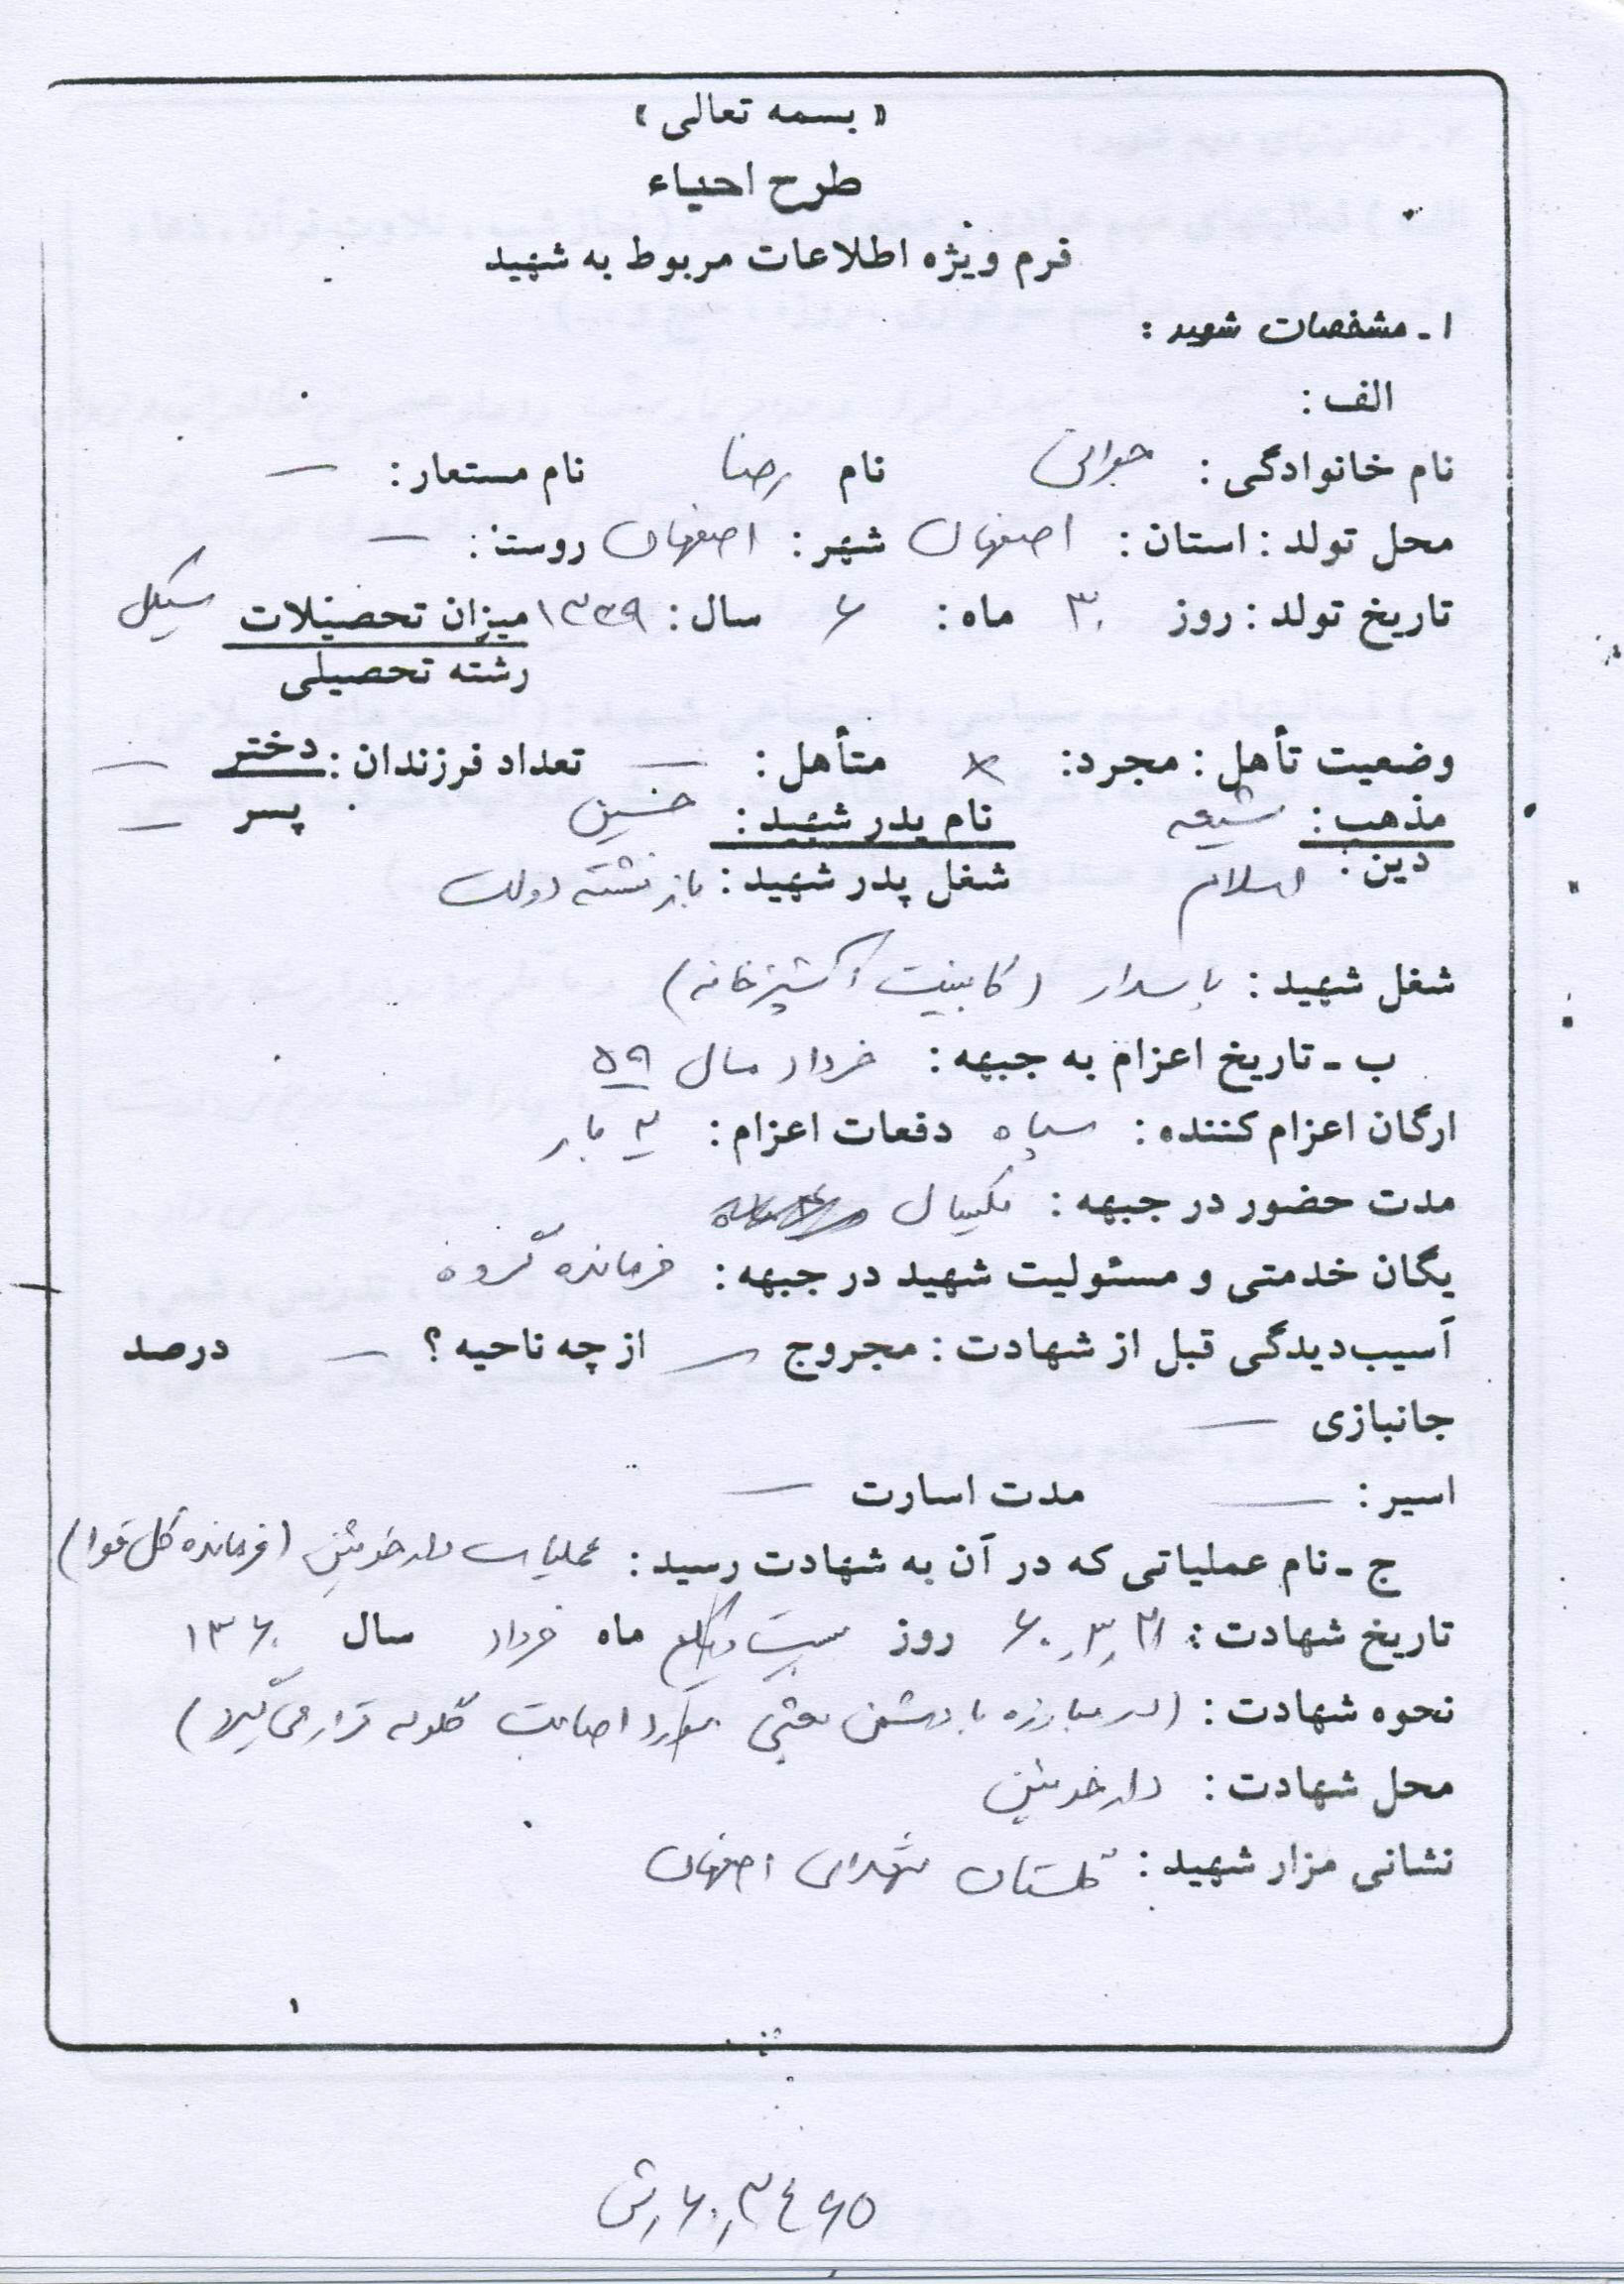 « بسمه تعالی »
طرح احیاء
فرم ویژه اطلاعات مربوط به شهید
۱ـ مشخصات شهید :
الف :
نام خانوادگی : جوانی نام رضا نام مستعار : —
محل تولد : استان : اصفهان شهر : اصفهان روستا : —
تاریخ تولد : روز ۳۰ ماه : ۶ سال : ۱۳۳۹ میزان تحصیلات سیکل
رشته تحصیلی
وضعیت تأهل : مجرد : × متأهل : — تعداد فرزندان : دختر —
مذهب : شیعه نام پدر شهید : حسین پسر —
دین : اسلام شغل پدر شهید : بازنشسته دولت
شغل شهید : پاسدار (کابینت آشپزخانه)
ب ـ تاریخ اعزام به جبهه : خرداد سال ۵۹
ارگان اعزام کننده : سپاه دفعات اعزام : ۲ بار
مدت حضور در جبهه : یکسال
یگان خدمتی و مسئولیت شهید در جبهه : فرمانده گروه
آسیب‌دیدگی قبل از شهادت : مجروح — از چه ناحیه ؟ — درصد
جانبازی —
اسیر : — مدت اسارت —
ج ـ نام عملیاتی که در آن به شهادت رسید : عملیات دارخوئین (فرمانده کل قوا)
تاریخ شهادت : ۶۰،۳،۲۱ روز بیست و یکم ماه خرداد سال ۱۳۶۰
نحوه شهادت : (در مبارزه با دشمن بعثی مورد اصابت گلوله قرار می‌گیرد)
محل شهادت : دارخوئین
نشانی مزار شهید : گلستان شهدای اصفهان
۱